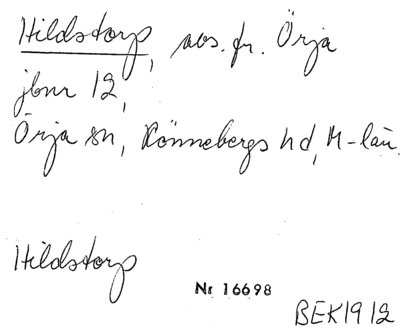 Hildstorp, avs. fr. Örja
jbnr 12,
Örja sn, Rönnebergs hd, M-län.
Hildstorp
Nr 16698
BEK1912